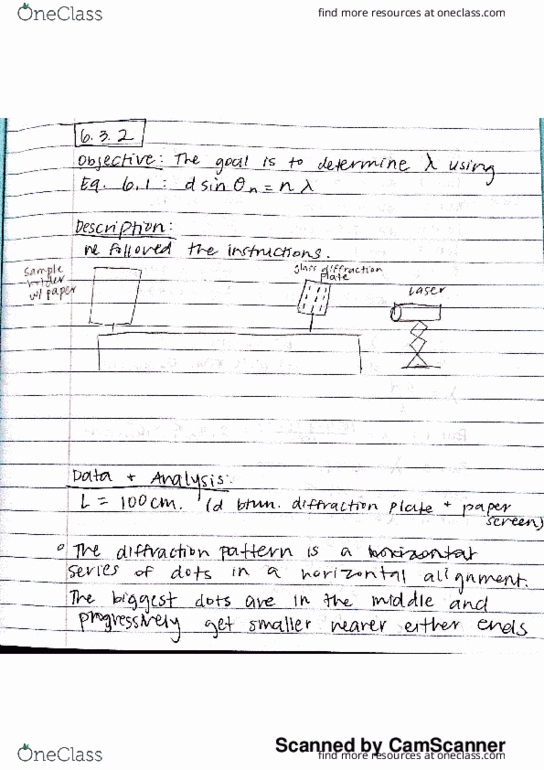 OneClass
find more resources at oneclass.com
6.3.2
Objective: The goal is to determine λ using
Eq. 6.1: d sin θn = n λ
Description:
we followed the instructions.
Sample
holder
w/ paper
glass diffraction
plate
Laser
Data + Analysis:
L = 100cm. (d btwn. diffraction plate + paper
screen)
° The diffraction pattern is a horizontal
series of dots in a horizontal alignment.
The biggest dots are in the middle and
progressively get smaller nearer either ends
Scanned by CamScanner
OneClass
find more resources at oneclass.com